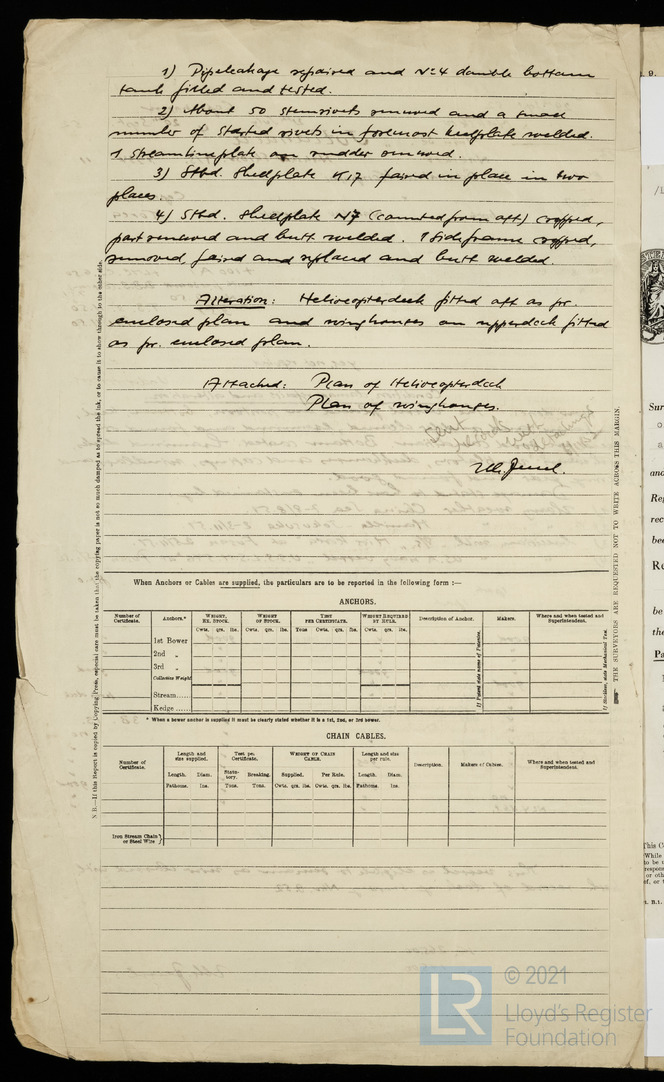 1) Pipeleakage repaired and No 4 double bottom
tank filled and tested.
2) About 50 stemrivets renewed and a small
number of started rivets in foremost keelplate welded.
1 Streamlineplate on rudder renewed.
3) Stbd. Shellplate K17 faired in place in two
places.
4) Stbd. Shellplate N7 (counted from aft) cropped,
part renewed and butt welded. 1 Sideframe cropped,
removed, faired and replaced and butt welded.
Alteration: Helicopterdeck fitted aft as pr.
enclosed plan and winghouses on upperdeck fitted
as pr. enclosed plan.
Attached: Plan of Helicopterdeck
Plan of winghouses.
N.B.—If this Report is copied by Copying Press, especial care must be taken that the copying paper is not so much damped as to spread the ink, or to cause it to show through to the other side.
THE SURVEYORS ARE REQUESTED NOT TO WRITE ACROSS THIS MARGIN.
When Anchors or Cables are supplied, the particulars are to be reported in the following form :—
ANCHORS.
Number of Certificate. Anchors.* WEIGHT, EX. STOCK. WEIGHT OF STOCK. TEST PER CERTIFICATE. WEIGHT REQUIRED BY RULE. Description of Anchor. Makers. Where and when tested and Superintendent.
Cwts. qrs. lbs. Cwts. qrs. lbs. Tons Cwts. qrs. lbs. Cwts. qrs. lbs.
1st Bower
2nd „
3rd „
Collective Weight
Stream
Kedge
If Patent state name of Patentee.
If Stockless, state Mechanical Test.
* When a bower anchor is supplied it must be clearly stated whether it is a 1st, 2nd, or 3rd bower.
CHAIN CABLES.
Number of Certificate. Length and size supplied. Test per Certificate. WEIGHT OF CHAIN CABLE. Length and size per rule. Description. Makers of Cables. Where and when tested and Superintendent.
Length. Diam. Statutory. Breaking. Supplied. Per Rule. Length. Diam.
Fathoms. Ins. Tons. Tons. Cwts. qrs. lbs. Cwts. qrs. lbs. Fathoms. Ins.
Iron Stream Chain or Steel Wire }
LR
© 2021
Lloyd's Register
Foundation